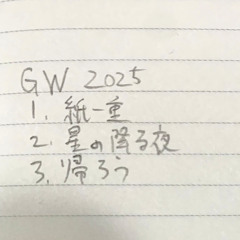 GW 2025
1. 紙一重
2. 星の降る夜
3. 帰ろう